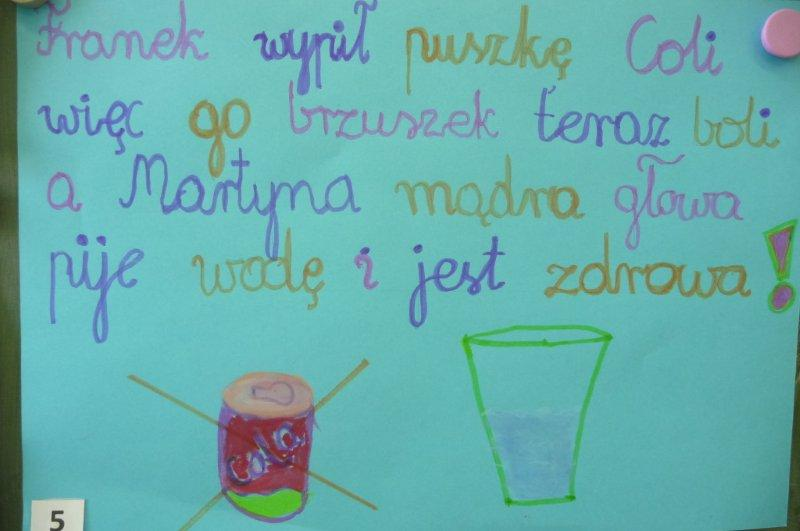 Franek wypił puszkę Coli
więc go brzuszek teraz boli
a Martyna mądra głowa
pije wodę i jest zdrowa!
cola
5